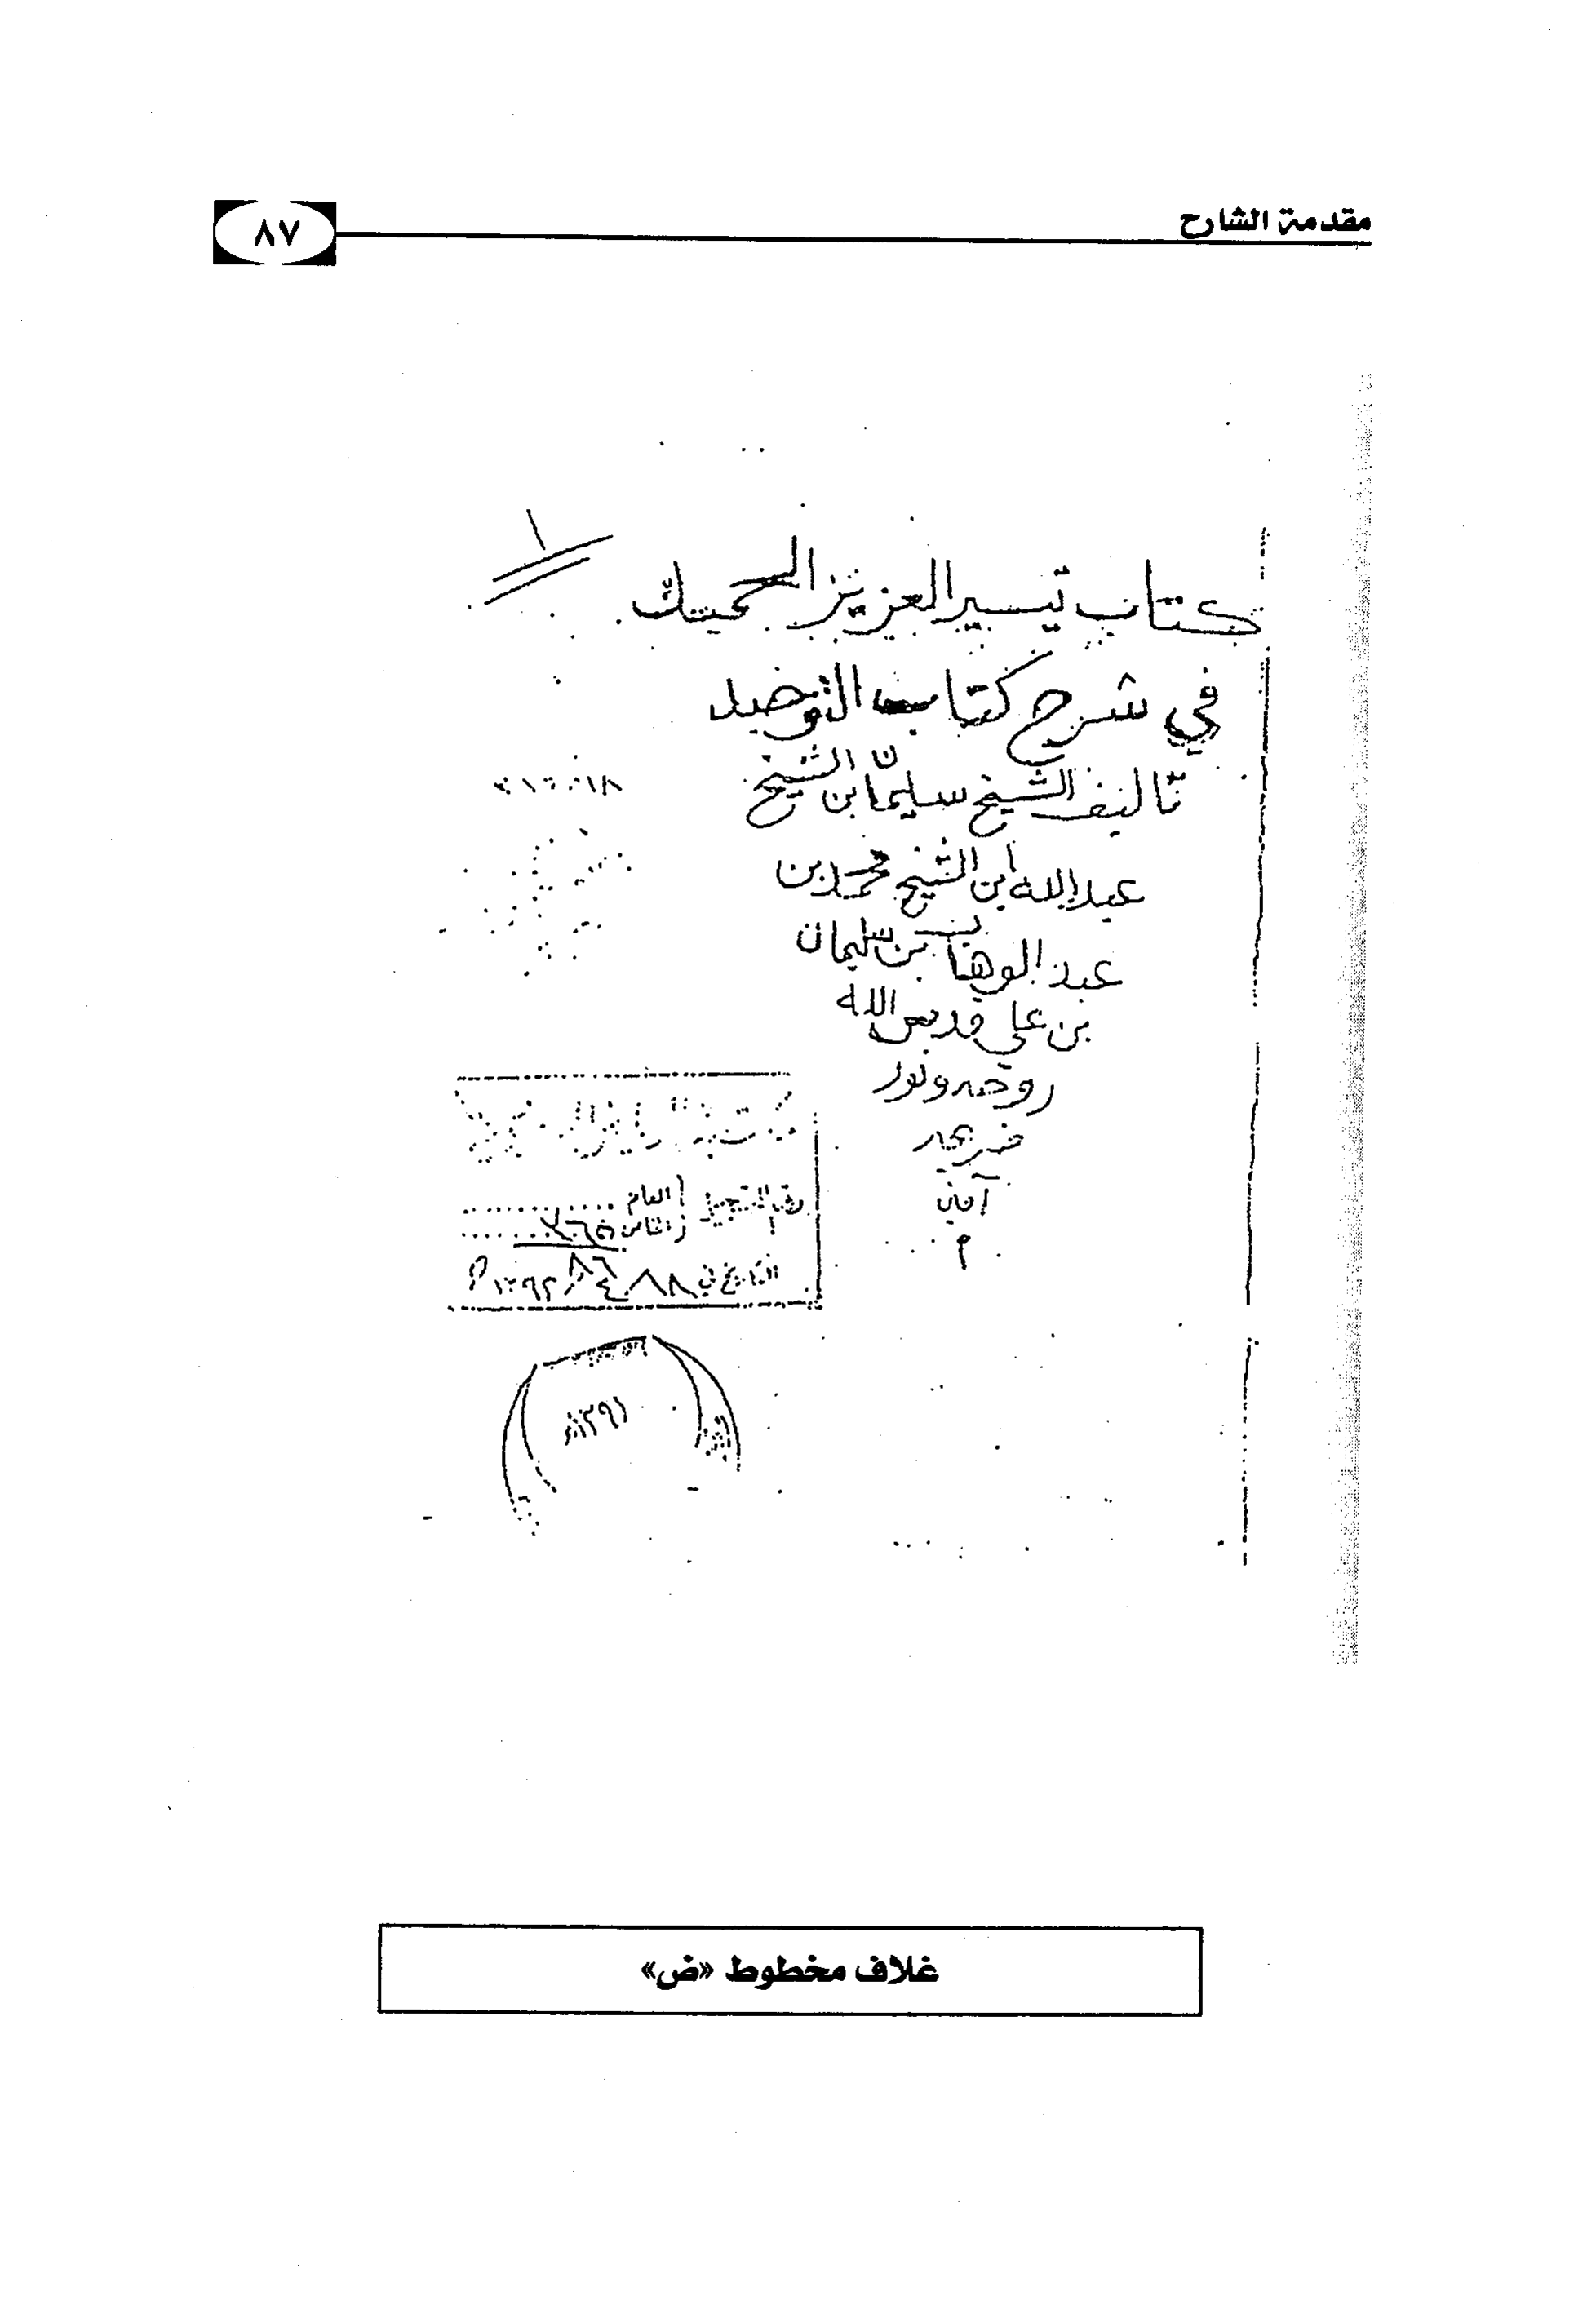 مقدمة الشارح
٨٧
١
كتاب تيسير العزيز الحميد
في شرح كتاب التوحيد
تأليف الشيخ سليمان ابن الشيخ
عبد الله ابن الشيخ محمد بن
عبد الوهاب بن سليمان
بن علي قدس الله
روحه ونور
ضريحه
آمين
م
رقم التسجيل العام
الخاص
التاريخ في
١٣٩١
غلاف مخطوط «ض»